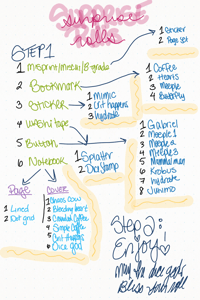 Surprise
rolls
STEP 1
1 misprint/metal/B-grade
1 Sticker
2 Page Set
2 Bookmark
1 Coffee
2 Hearts
3 Meeple
4 Butterfly
3 Sticker
1 Mimic
2 Crit happens
3 hydrate
4 washi tape
1 Gabriel
2 Meeple 1
3 Meeple 2
4 Meeple 3
5 Mammal man
6 Krobus
7 hydrate
8 Junimo
5 Button
1 Splatter
2 Dice Stamp
6 Notebook
Page
1 Lined
2 Dot grid
Cover
1 Chaos Cow
2 Bleeding heart
3 Crowded Coffee
4 Simple Coffee
5 Crit Happens
6 Dice god
Step 2:
Enjoy
May the dice gods
Bless your roll